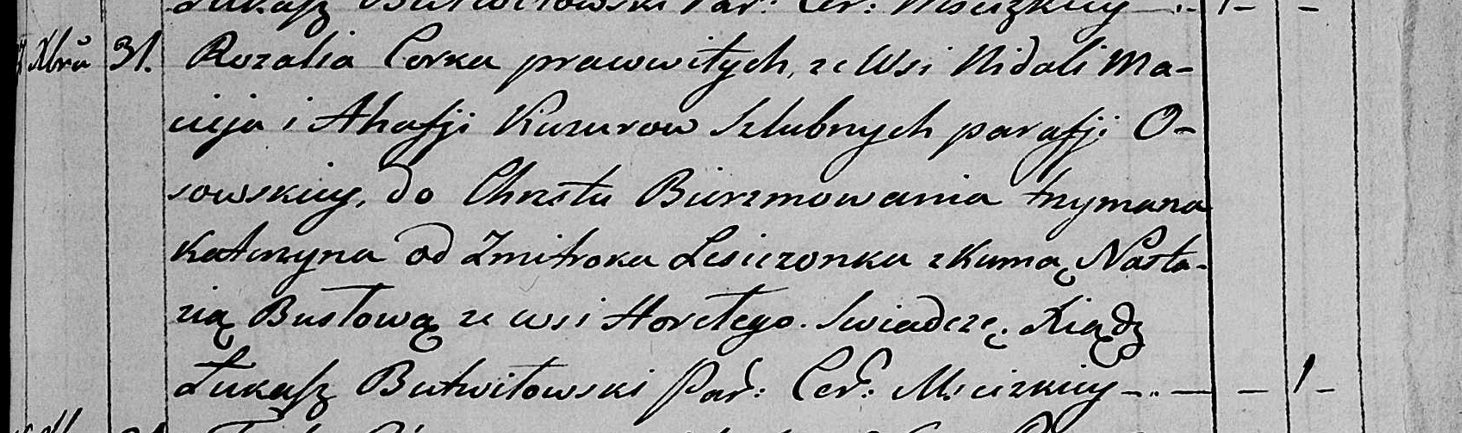 Łukasz Butwiłowski Par: Cer: Mścizkiey
Xbrũ 31. Rozalia Corka prawowitych, ze Wsi Nidali Ma-
cieja i Ahafji Kuzurow Szlubnych parafji O-
sowskiey, do Chrztu Bierzmowania trzymana
Katarzyna od Zmitroka Lisiczonka z Kumą Nasta-
zią Busłową ze wsi Horełego. Swiadczę. Xiądz
Łukasz Butwiłowski Par: Cer: Mścizkiey - 1 -